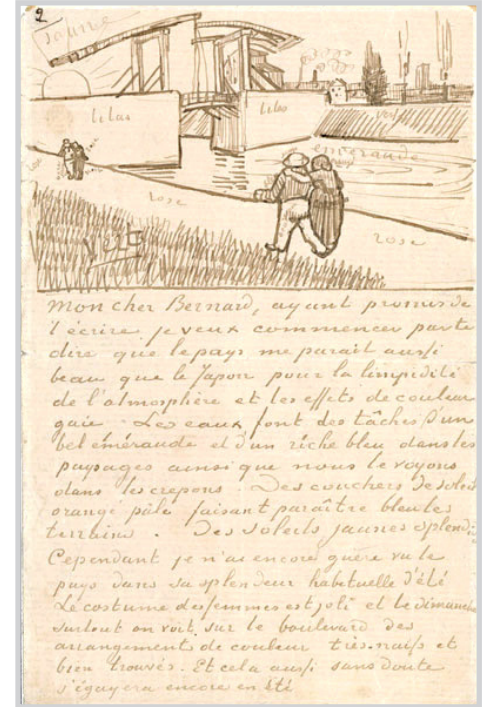 2
Jaune
lilas
lilas
vert
émeraude
rose
rose
rose
vert
Mon cher Bernard, ayant promis de
t'écrire je veux commencer par te
dire que le pays me parait aussi
beau que le Japon pour la limpidité
de l'atmosphère et les effets de couleur
gaie. Les eaux font des tâches d'un
bel émeraude et d'un riche bleu dans les
paysages ainsi que nous le voyons
dans les crepons Des couchers de soleil
orangé pâle faisant paraître bleu les
terrains. Des soleils jaunes splendi
Cependant je n'ai encore guère vu le
pays dans sa splendeur habituelle d'été
Le costume des femmes est joli et le dimanche
surtout on voit sur le boulevard des
arrangements de couleur très naifs et
bien trouvés. Et cela aussi sans doute
s'égayera encore en été